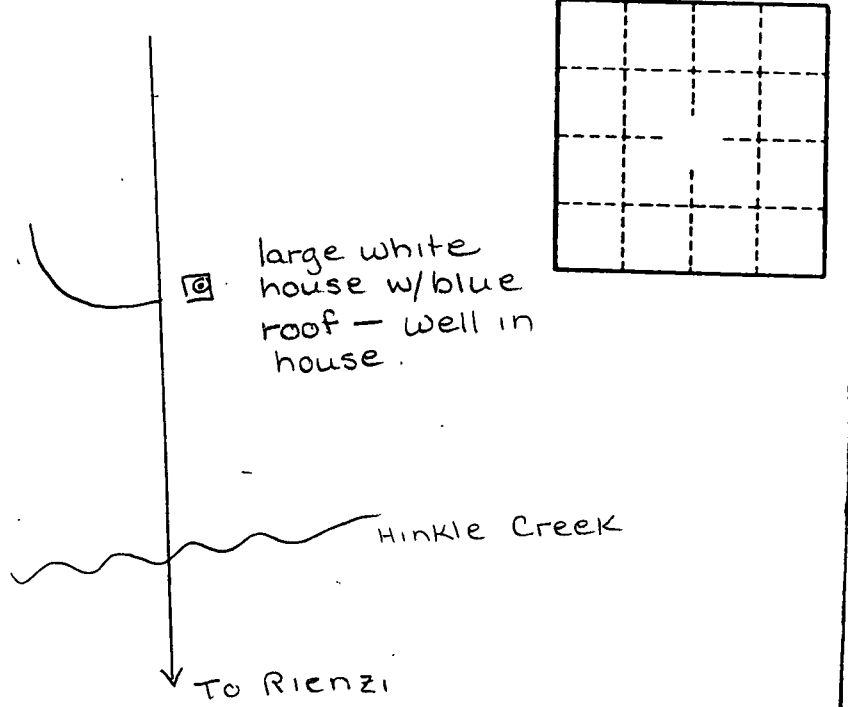 large white
house w/blue
roof — well in
house.
Hinkle Creek
To Rienzi